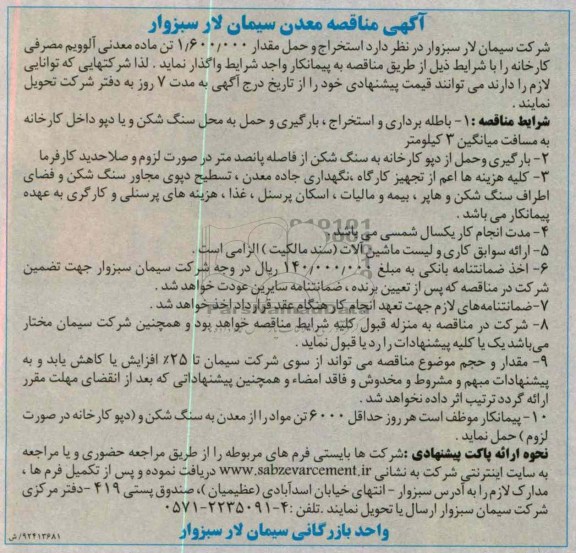 آگهی مناقصه معدن سیمان لار سبزوار
شرکت سیمان لار سبزوار در نظر دارد استخراج و حمل مقدار ۱/۶۰۰/۰۰۰ تن ماده معدنی آلوویم مصرفی
کارخانه را با شرایط ذیل از طریق مناقصه به پیمانکار واجد شرایط واگذار نماید . لذا شرکتهایی که توانایی
لازم را دارند می توانند قیمت پیشنهادی خود را از تاریخ درج آگهی به مدت ۷ روز به دفتر شرکت تحویل
نمایند .
شرایط مناقصه : ۱- باطله برداری و استخراج ، بارگیری و حمل به محل سنگ شکن و یا دپو داخل کارخانه
به مسافت میانگین ۳ کیلومتر
۲- بارگیری وحمل از دپو کارخانه به سنگ شکن از فاصله پانصد متر در صورت لزوم و صلاحدید کارفرما
۳- کلیه هزینه ها اعم از تجهیز کارگاه ،نگهداری جاده معدن ، تسطیح دپوی مجاور سنگ شکن و فضای
اطراف سنگ شکن و هاپر ، بیمه و مالیات ، اسکان پرسنل ، غذا ، هزینه های پرسنلی و کارگری به عهده
پیمانکار می باشد .
۴- مدت انجام کار یکسال شمسی می باشد .
۵- ارائه سوابق کاری و لیست ماشین آلات (سند مالکیت ) الزامی است .
۶- اخذ ضمانتنامه بانکی به مبلغ ۱۴۰/۰۰۰/۰۰۰ ریال در وجه شرکت سیمان سبزوار جهت تضمین
شرکت در مناقصه که پس از تعیین برنده ، ضمانتنامه سایرین عودت خواهد شد .
۷-ضمانتنامه‌های لازم جهت تعهد انجام کار هنگام عقد قرارداد اخذ خواهد شد .
۸- شرکت در مناقصه به منزله قبول کلیه شرایط مناقصه خواهد بود و همچنین شرکت سیمان مختار
می‌باشد یک یا کلیه پیشنهادات را رد یا قبول نماید .
۹- مقدار و حجم موضوع مناقصه می تواند از سوی شرکت سیمان تا ۲۵٪ افزایش یا کاهش یابد و به
پیشنهادات مبهم و مشروط و مخدوش و فاقد امضاء و همچنین پیشنهاداتی که بعد از انقضای مهلت مقرر
ارائه گردد ترتیب اثر داده نخواهد شد .
۱۰- پیمانکار موظف است هر روز حداقل ۶۰۰۰ تن مواد را از معدن به سنگ شکن و (دپو کارخانه در صورت
لزوم ) حمل نماید .
نحوه ارائه پاکت پیشنهادی :شرکت ها بایستی فرم های مربوطه را از طریق مراجعه حضوری و یا مراجعه
به سایت اینترنتی شرکت به نشانی www.sabzevarcement.ir دریافت نموده و پس از تکمیل فرم ها ،
مدارک لازم را به آدرس سبزوار - انتهای خیابان اسدآبادی (عظیمیان )، صندوق پستی ۴۱۹ -دفتر مرکزی
شرکت سیمان سبزوار ارسال یا تحویل نمایند .تلفن :۴-۲۲۳۵۰۹۱-۰۵۷۱
واحد بازرگانی سیمان لار سبزوار
۹۲۴۱۳۶۸۱/ش